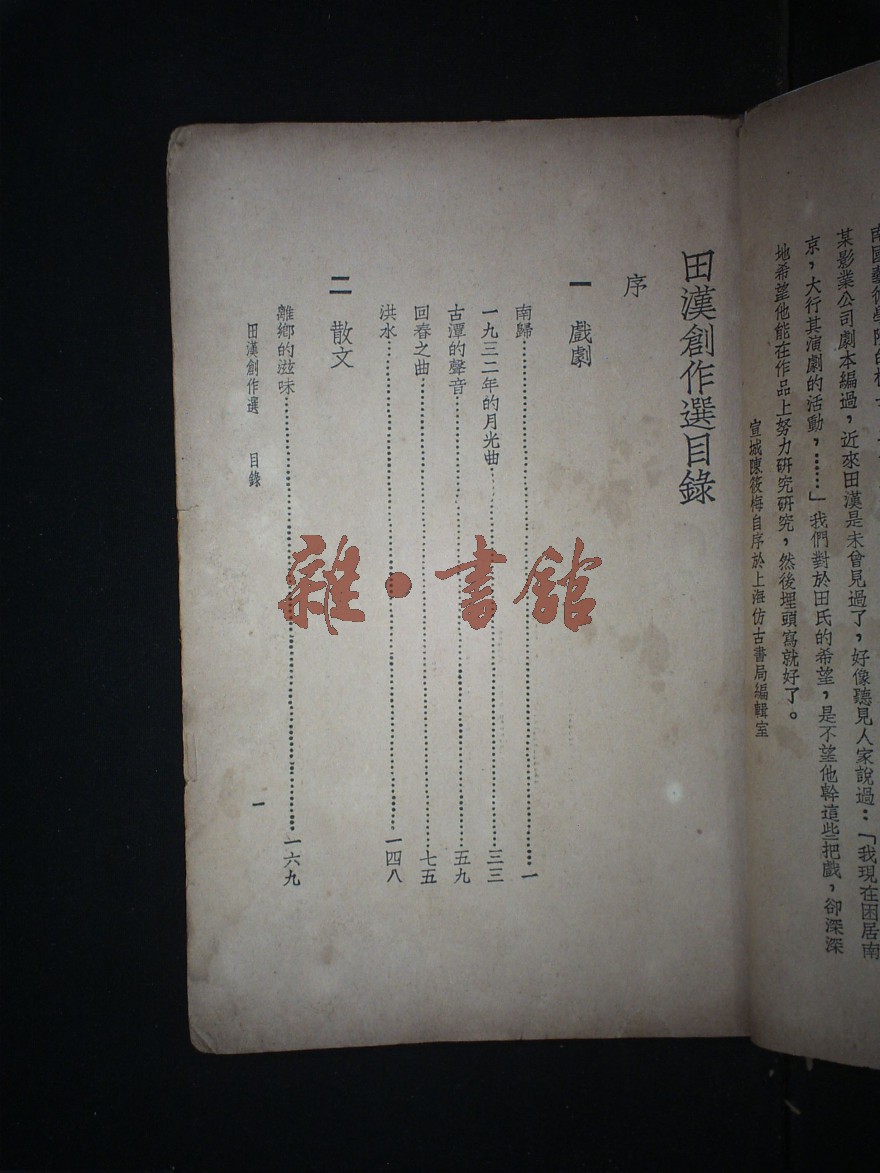 某影業公司劇本編過，近來田漢是未曾見過了，好像聽見人家說過：「我現在困居南
京，大行其演劇的活動，……」我們對於田氏的希望，是不望他幹這些把戲，卻深深
地希望他能在作品上努力研究研究，然後埋頭寫就好了。
宣城陳筱梅自序於上海仿古書局編輯室
田漢創作選目錄
序
一 戲劇
南歸……一
一九三二年的月光曲……三三
古潭的聲音……五九
回春之曲……七五
洪水……一四八
二 散文
離鄉的滋味……一六九
田漢創作選 目錄
一
雜·書館